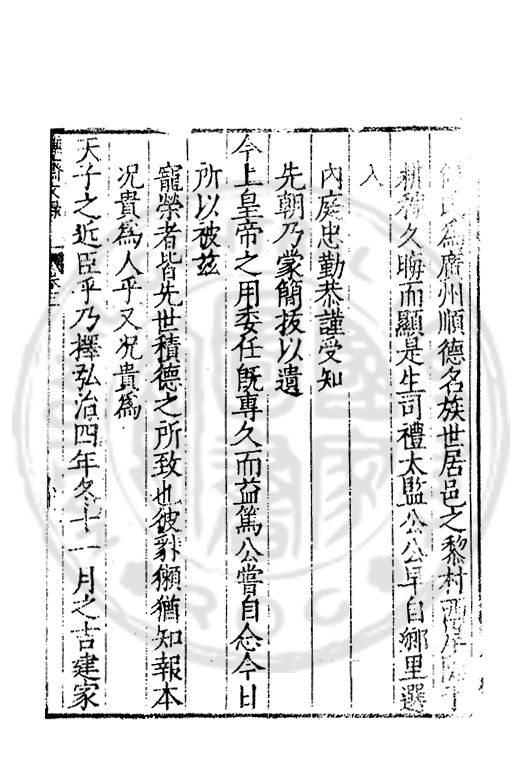 為廣州順德名族世居邑之黎村
耕稼久晦而顯是生司禮太監公公早自鄉里選
入
內庭忠勤恭謹受知
先朝乃蒙簡抜以遺
今上皇帝之用委任旣專久而益篤公嘗自念今日
所以被茲
寵榮者皆先世積德之所致也彼豺獺猶知報本
况貴為人乎又况貴為
天子之近臣乎乃擇弘治四年冬十一月之吉建家